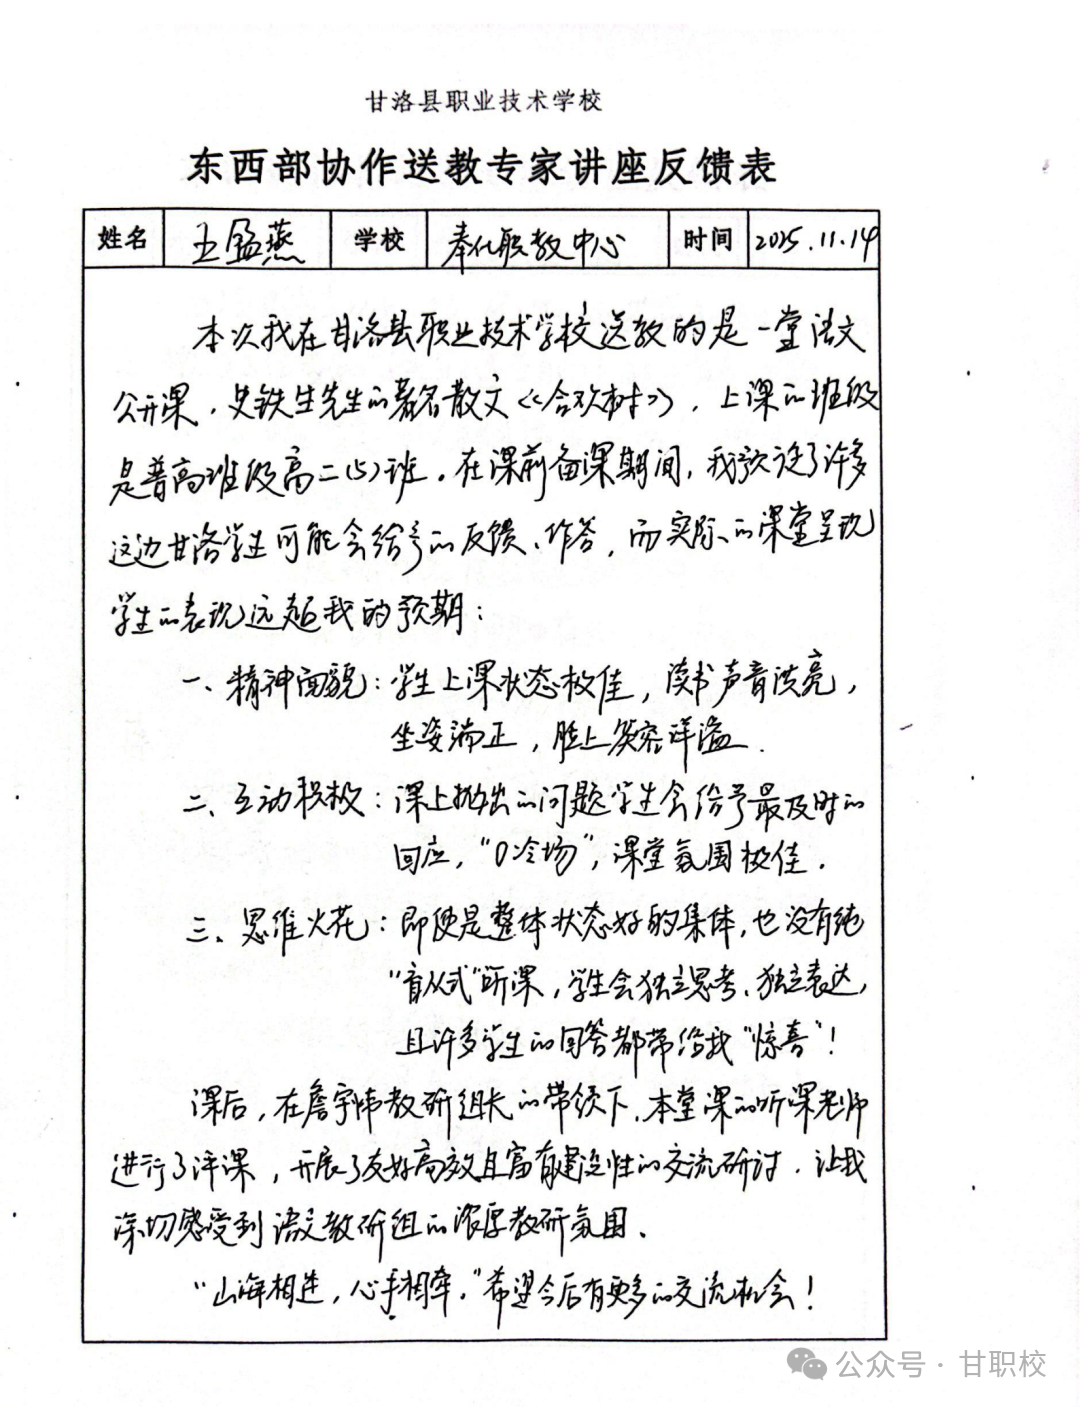 甘洛县职业技术学校
东西部协作送教专家讲座反馈表
姓名 王孟燕 学校 奉化职教中心 时间 2025.11.14
本次我在甘洛县职业技术学校送教的是一堂语文
公开课，史铁生先生的著名散文《合欢树》，上课的班级
是普高班级高二（5）班。在课前备课期间，我预设了许多
这边甘洛学生可能会给予的反馈、作答，而实际的课堂呈现
学生的表现远超我的预期：
一、精神面貌：学生上课状态极佳，读书声音洪亮，
坐姿端正，脸上笑容洋溢.
二、互动积极：课上抛出的问题学生会给予最及时的
回应，“0冷场”，课堂氛围极佳.
三、思维火花：即使是整体状态好的集体，也没有纯
“盲从式”听课，学生会独立思考、独立表达，
且许多学生的回答都带给我“惊喜”！
课后，在詹宇帏教研组长的带领下，本堂课的听课老师
进行了评课，开展了友好高效且富有建设性的交流研讨．让我
深切感受到语文教研组的浓厚教研氛围.
“山海相连，心手相牵。”希望今后有更多的交流机会！
公众号 · 甘职校